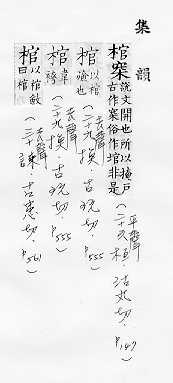 集韻
棺窠說文關也所以掩尸
古作窠俗作堷非是
(平聲
二十六桓沽丸切.
P.147)
棺以棺
斂也(去聲
二十九換.古玩切.
P.555)
棺(去聲
二十九換.古玩切.
P.555)
棺以棺斂
曰棺(去聲
三十諫.古患切.
P.561)